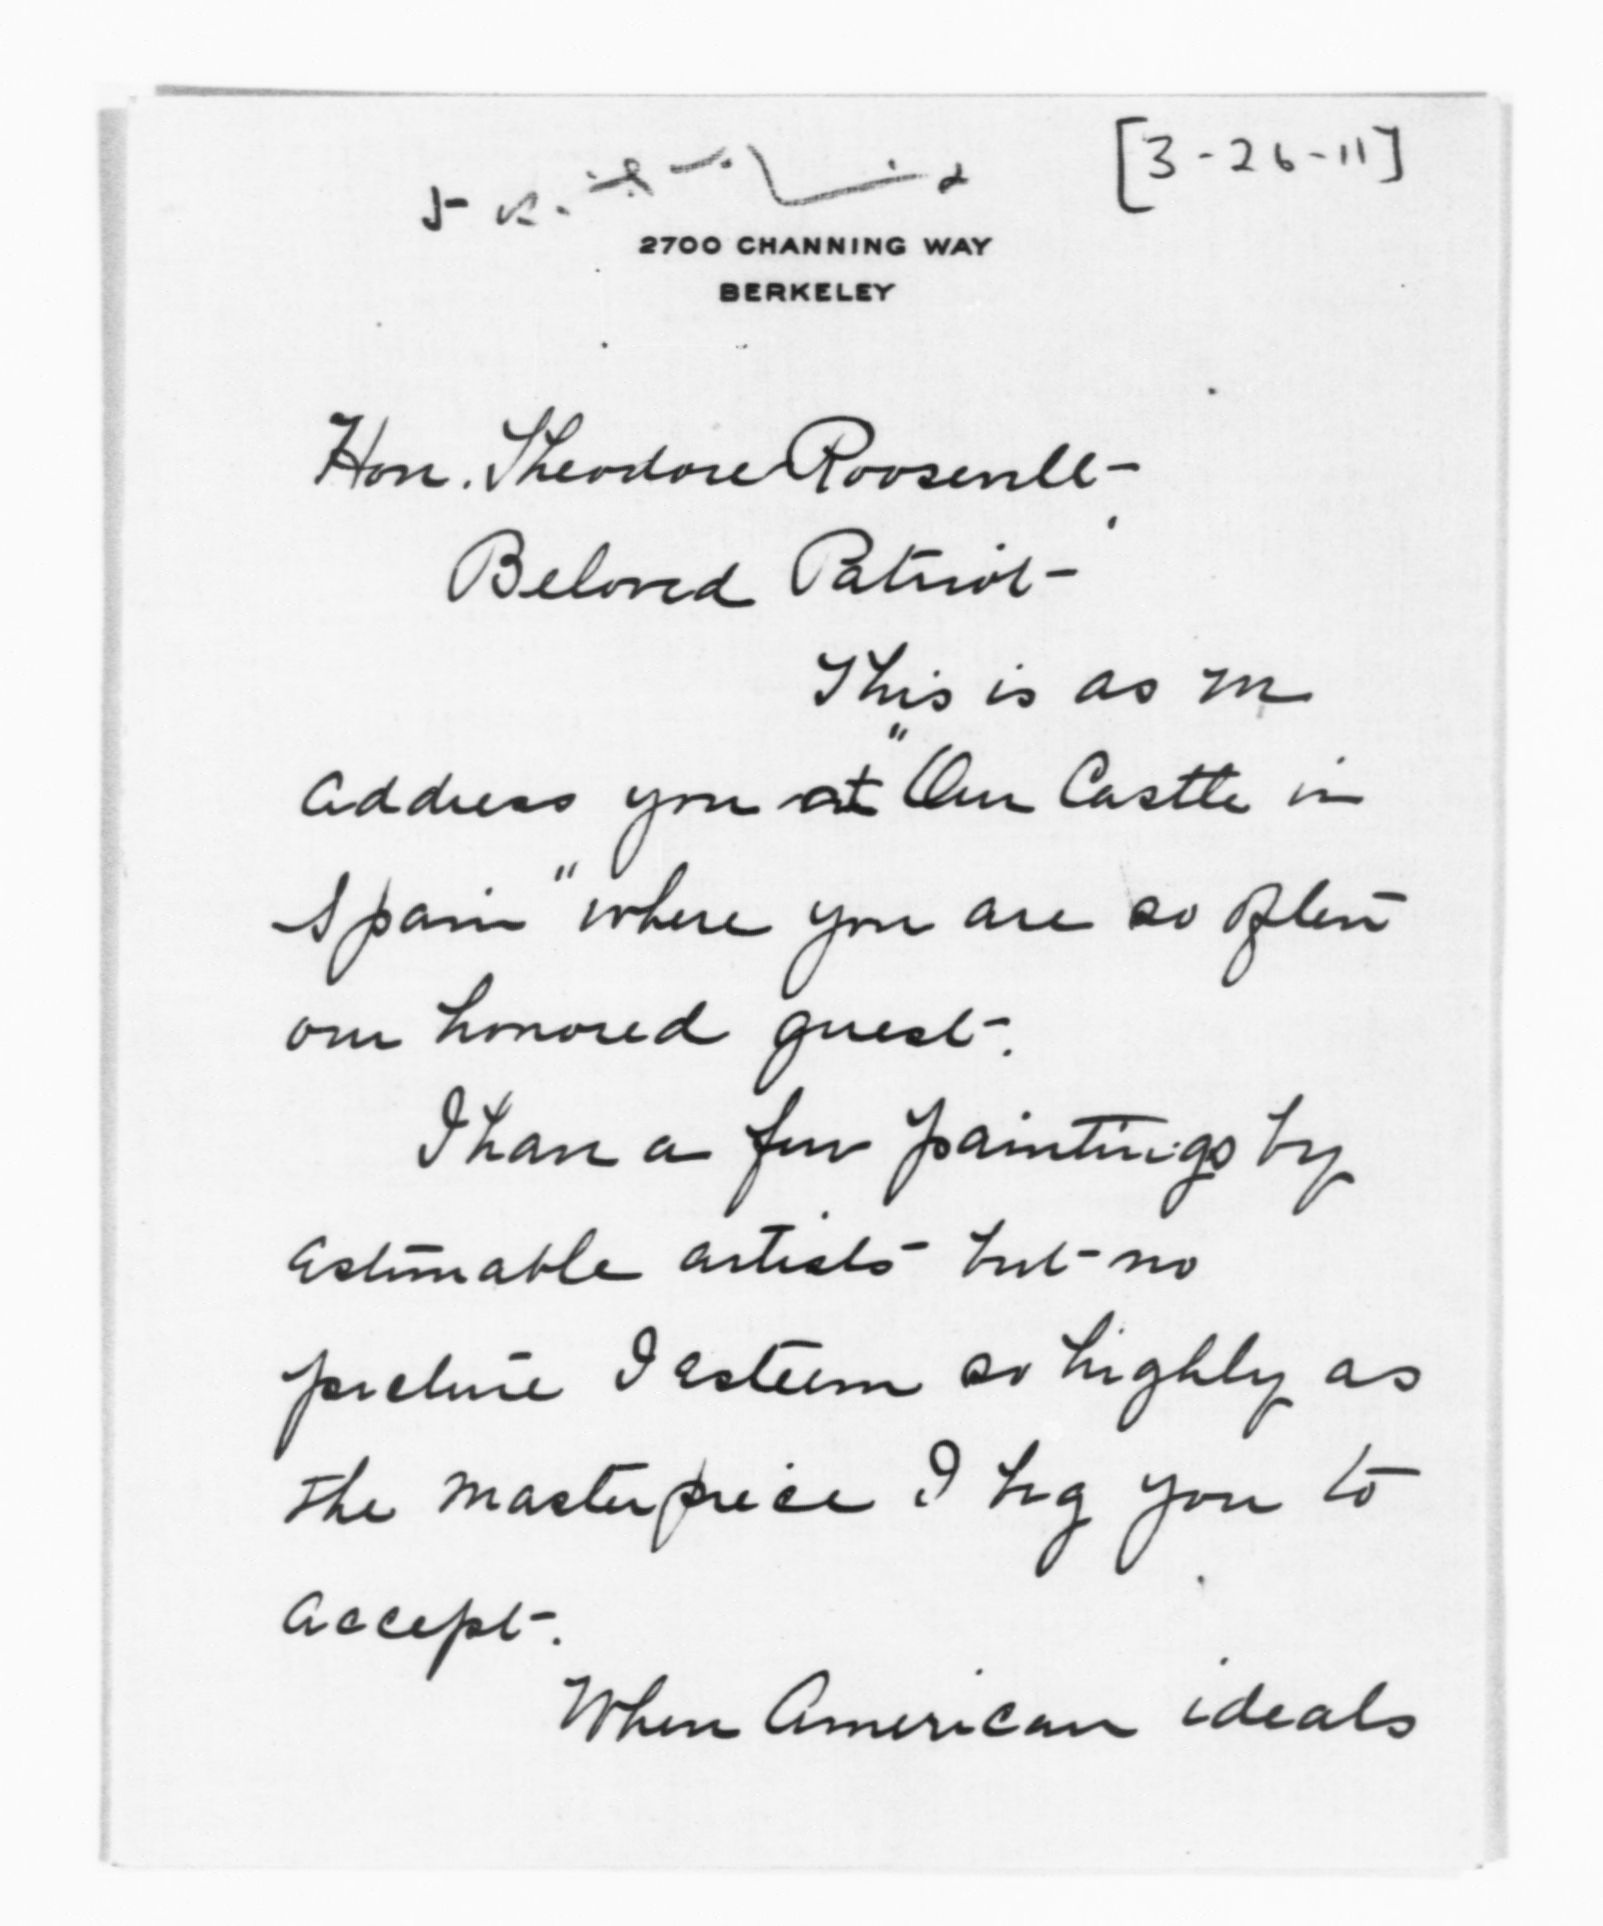 [3-26-11]
2700 CHANNING WAY
BERKELEY
Hon. Theodore Roosevelt-
Beloved Patriot-
This is as we
address you at "Our Castle in
Spain" where you are so often
our honored guest.
I have a few paintings by
estimable artists but no
picture I esteem so highly as
the masterpiece I beg you to
accept.
When American ideals